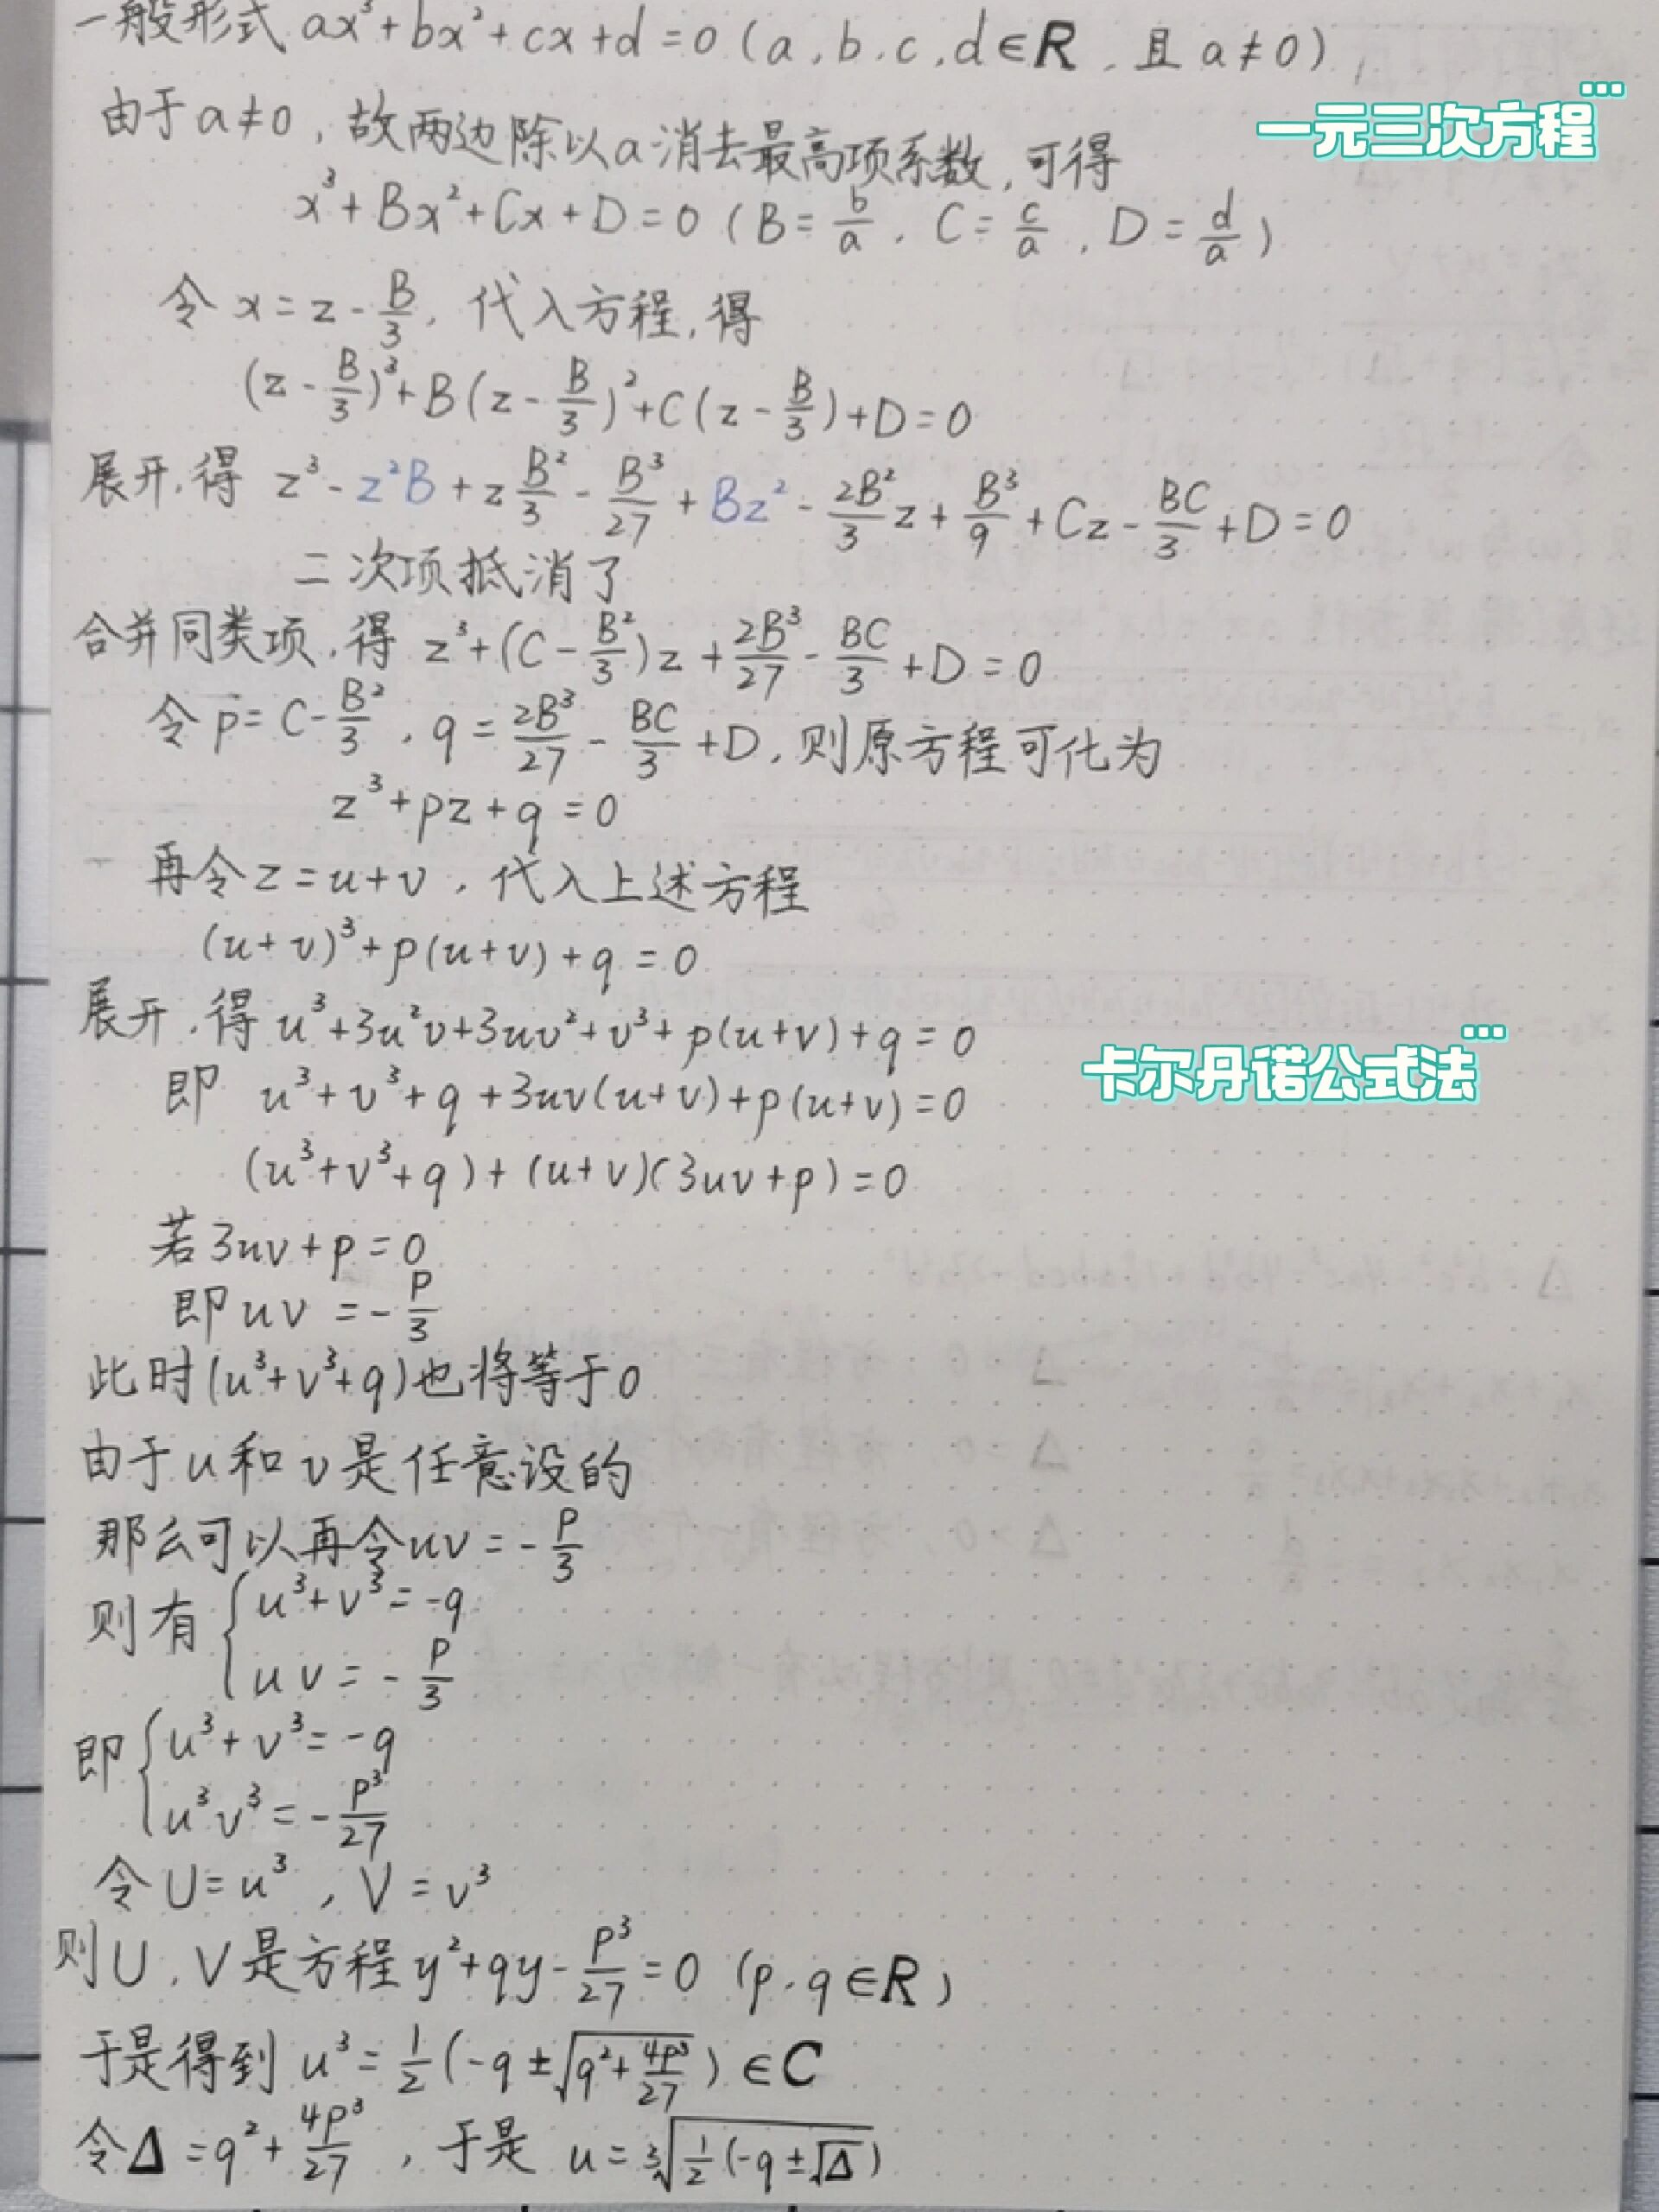 一般形式 ax³+bx²+cx+d=0 (a,b,c,d∈R,且 a≠0)
一元三次方程
由于a≠0,故两边除以a消去最高项系数,可得
x³+Bx²+Cx+D=0 (B=b/a, C=c/a, D=d/a)
令 x=z-B/3, 代入方程,得
(z-B/3)³+B(z-B/3)²+C(z-B/3)+D=0
展开,得 z³-z²B+zB²/3-B³/27+Bz²-2B²/3z+B³/9+Cz-BC/3+D=0
二次项抵消了
合并同类项,得 z³+(C-B²/3)z+2B³/27-BC/3+D=0
令p=C-B²/3, q=2B³/27-BC/3+D,则原方程可化为
z³+pz+q=0
再令z=u+v, 代入上述方程
(u+v)³+p(u+v)+q=0
展开,得 u³+3u²v+3uv²+v³+p(u+v)+q=0
卡尔丹诺公式法
即 u³+v³+q+3uv(u+v)+p(u+v)=0
(u³+v³+q)+(u+v)(3uv+p)=0
若3uv+p=0
即uv=-p/3
此时(u³+v³+q)也将等于0
由于u和v是任意设的
那么可以再令uv=-p/3
则有{u³+v³=-q
uv=-p/3
即{u³+v³=-q
u³v³=-p³/27
令U=u³, V=v³
则U,V是方程y²+qy-p³/27=0 (p,q∈R)
于是得到 u³=1/2(-q±√(q²+4p³/27))∈C
令Δ=q²+4p³/27, 于是 u=³√(1/2(-q±√Δ))